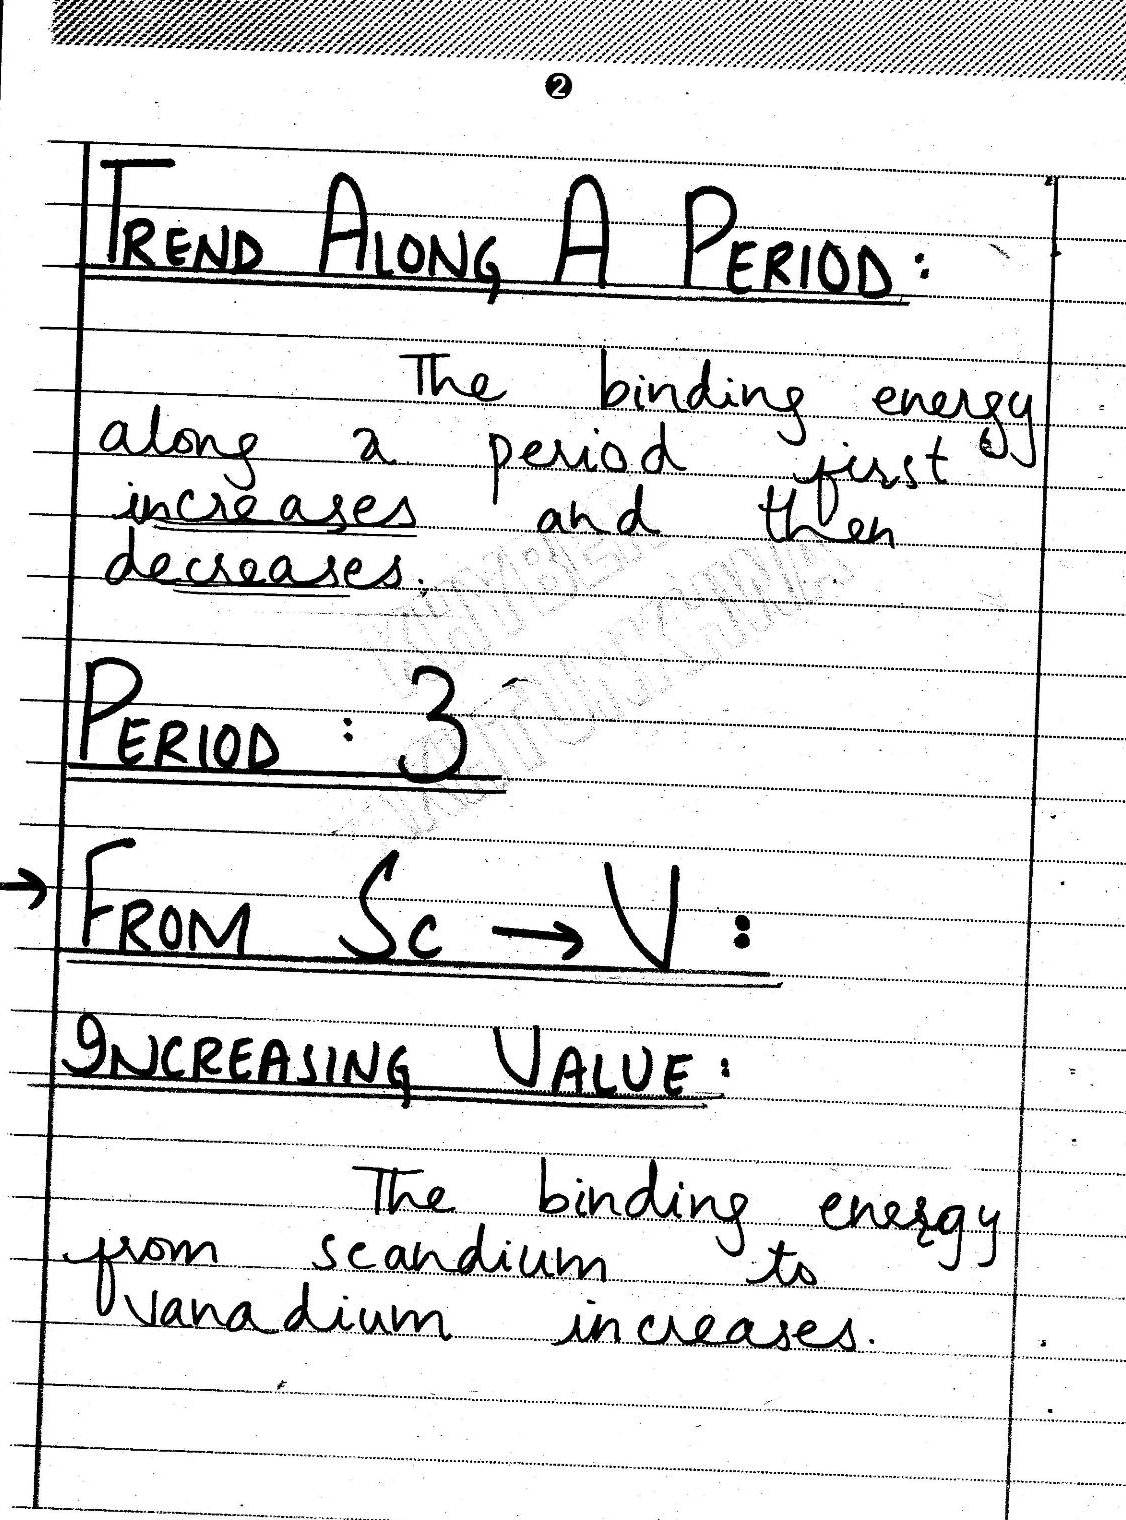 2
TREND ALONG A PERIOD:
The binding energy
along a period first
increases and then
decreases.
PERIOD : 3
→ FROM Sc → V:
INCREASING VALUE:
The binding energy
from scandium to
vanadium increases.